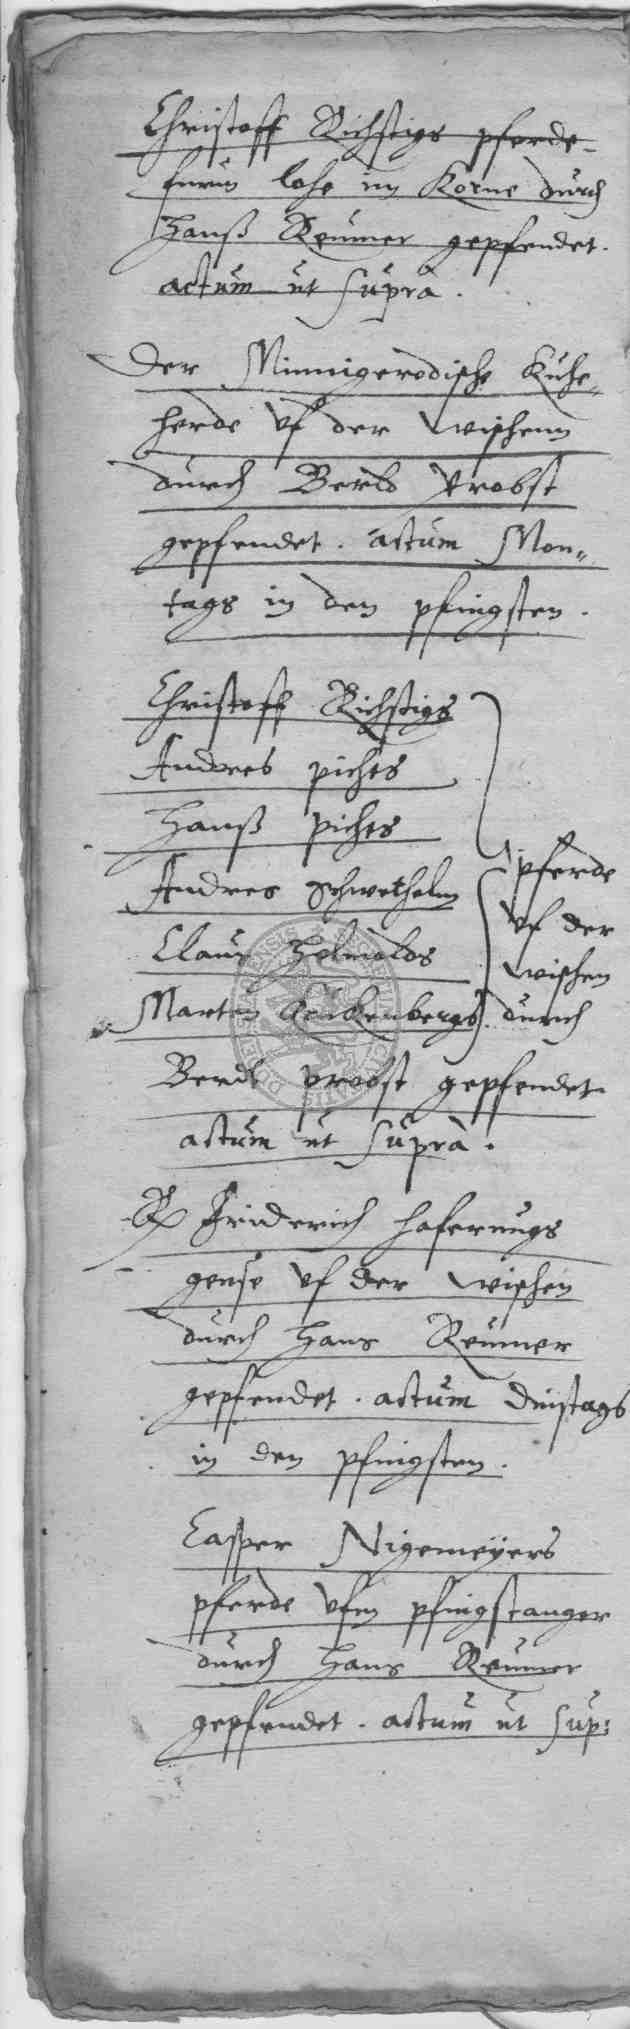 Christoff Richstigs pferde
furm lohe im Korne durch
Hanß Reumer gepfendet.
actum ut suprà.
Der Minnigerodische Kühe„
herde vf der wischenn
durch Berld Probst
gepfendet. actum Mon„
tags in den pfingsten.
Christoff Richstigs
Andres pichts
Hanß pichts
Andres Schwethelm
Claus Helmolds
Marten
pferde
vf der
wischen
durch
Berdt probst gepfendet
actum ut suprà.
Friderich hafernugs
gense vf der wischen
durch Hans Reumer
gepfendet. actum Dinstags
in den pfingsten.
Casper Nigemeÿers
pferde vfm pfingstanger
durch Hans Reumer
gepfendet. actum ut sup: